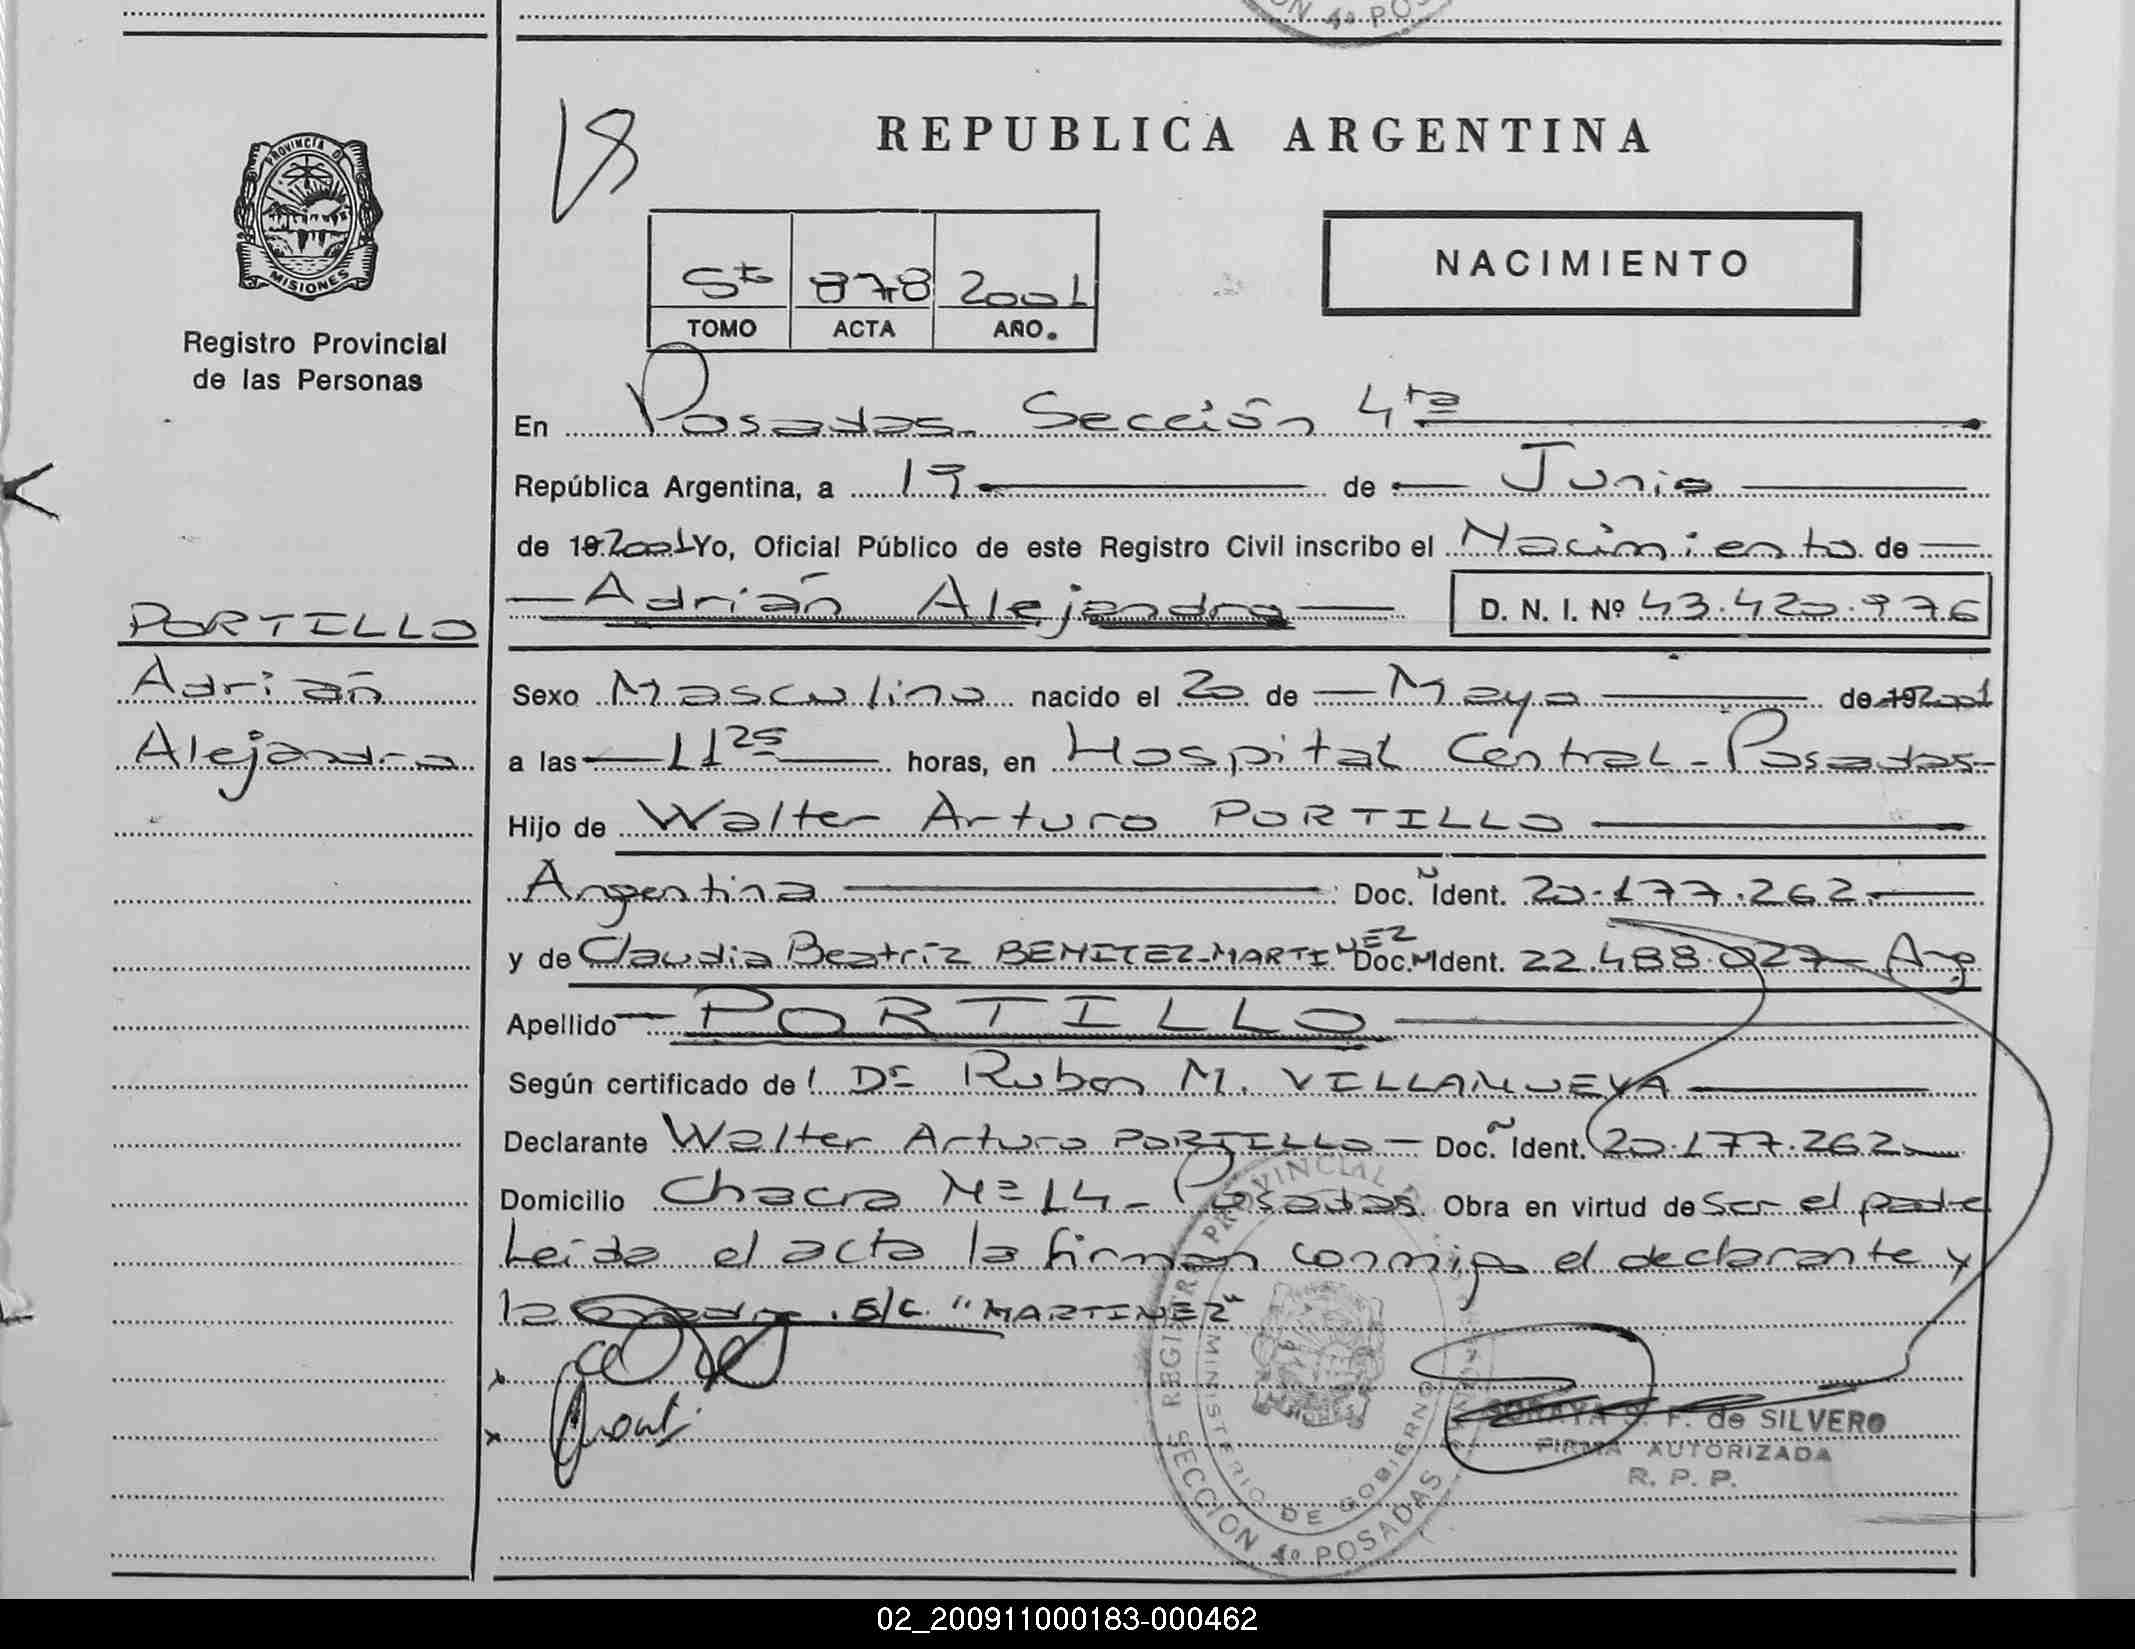 ON 4º POS
18
REPUBLICA ARGENTINA
PROVINCIA DE
MISIONES
Registro Provincial
de las Personas
NACIMIENTO
5to 878 2001
TOMO ACTA AÑO.
En Posadas Sección 4ta
República Argentina, a 19 de Junio
de 19 2001 Yo, Oficial Público de este Registro Civil inscribo el Nacimiento de
Adrián Alejandro D. N. I. Nº 43.420.976
PORTILLO
Adrián
Alejandro
Sexo Masculino nacido el 20 de Mayo de 19 2001
a las 11 25 horas, en Hospital Central - Posadas-
Hijo de Walter Arturo PORTILLO
Argentina Doc. Ident. 20.177.262
y de Claudia Beatríz BENITEZ-MARTINEZ Doc. Ident. 22.488.027 - Arg
Apellido PORTILLO
Según certificado de Dr Ruben M. VILLANUEVA
Declarante Walter Arturo PORTILLO - Doc. Ident. 20.177.262
Domicilio Chacra Nº 14 - Posadas Obra en virtud de ser el padre
Leída el acta la firman conmigo el declarante y
la . E/L. "MARTINEZ"
REGISTRO PROVINCIAL
MINISTERIO DE GOBIERNO
MISIONES
SECCION 4º POSADAS
SORAYA S. F. de SILVERO
FIRMA AUTORIZADA
R. P. P.
02_200911000183-000462